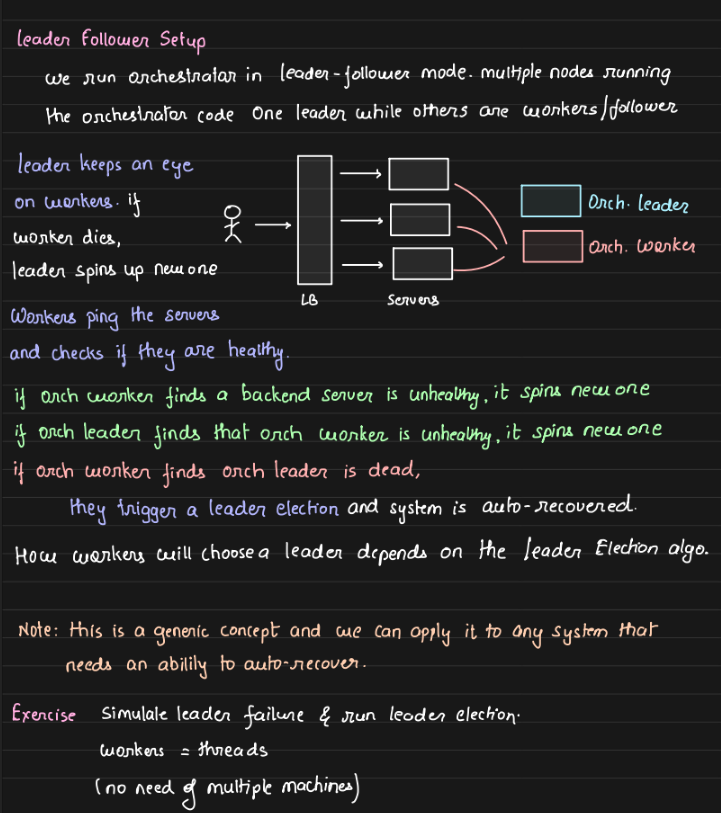 leader follower Setup
we run orchestrator in leader-follower mode. multiple nodes running
the orchestrator code one leader while others are workers/follower
leader keeps an eye
on workers. if
worker dies,
leader spins up new one
LB
Servers
Orch. leader
orch. worker
Workers ping the servers
and checks if they are healthy.
if orch worker finds a backend server is unhealthy, it spins new one
if orch leader finds that orch worker is unhealthy, it spins new one
if orch worker finds orch leader is dead,
they trigger a leader election and system is auto-recovered.
How workers will choose a leader depends on the leader Election algo.
Note: this is a generic concept and we can apply it to any system that
needs an ability to auto-recover.
Exercise Simulate leader failure & run leader election.
workers = threads
(no need of multiple machines)